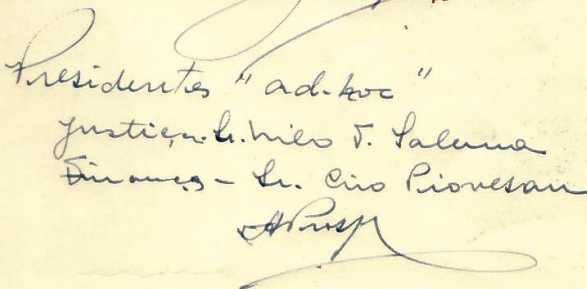 Presidentes "ad-hoc"
Justiça - Sr. Nilo T. Salerma
Finanças - Sr. Ciro Piovesan